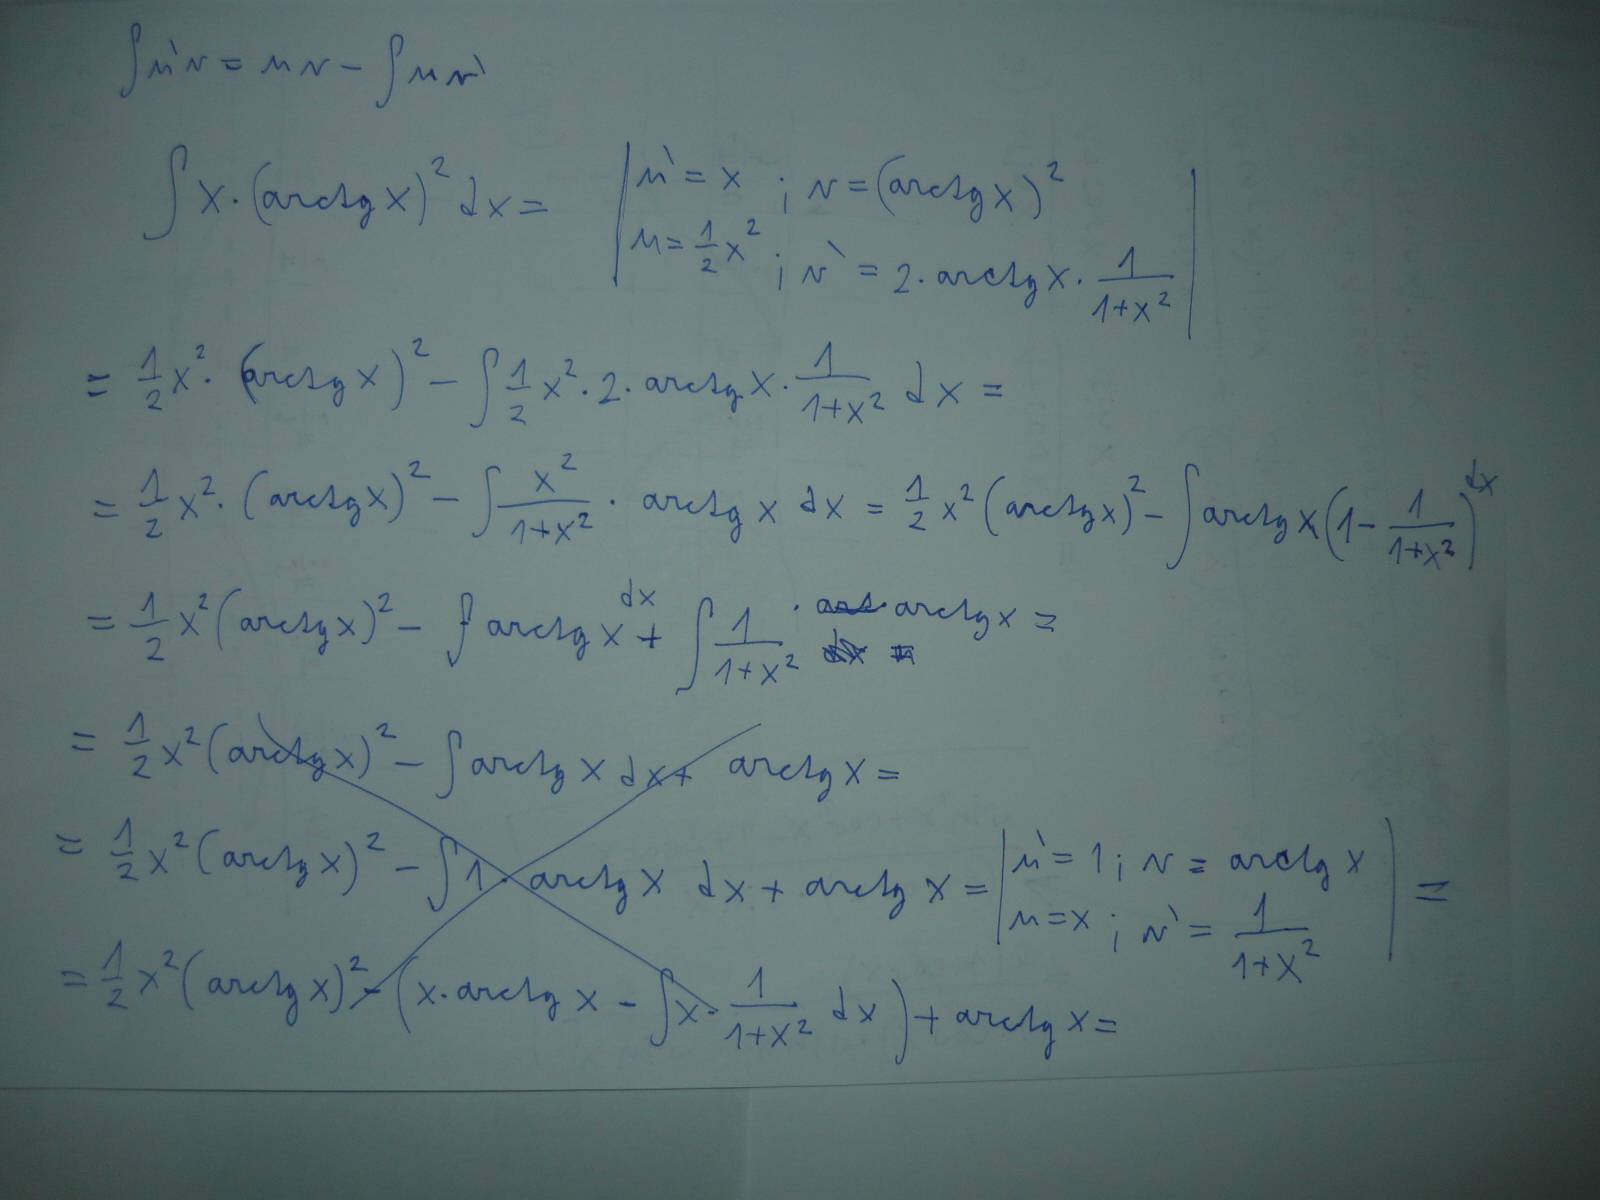 ∫u'v = uv - ∫uv'
∫x·(arctg x)² dx = | u' = x ; v = (arctg x)²
u = 1/2 x² ; v' = 2·arctg x · 1/(1+x²) |
= 1/2 x² · (arctg x)² - ∫ 1/2 x² · 2 · arctg x · 1/(1+x²) dx =
= 1/2 x² · (arctg x)² - ∫ x²/(1+x²) · arctg x dx = 1/2 x² (arctg x)² - ∫ arctg x (1 - 1/(1+x²)) dx
= 1/2 x² (arctg x)² - ∫ arctg x dx + ∫ 1/(1+x²) · arctg x =
= 1/2 x² (arctg x)² - ∫ arctg x dx + arctg x =
= 1/2 x² (arctg x)² - ∫ 1 · arctg x dx + arctg x = | u' = 1 ; v = arctg x
u = x ; v' = 1/(1+x²) | =
= 1/2 x² (arctg x)² - (x · arctg x - ∫ x · 1/(1+x²) dx) + arctg x =